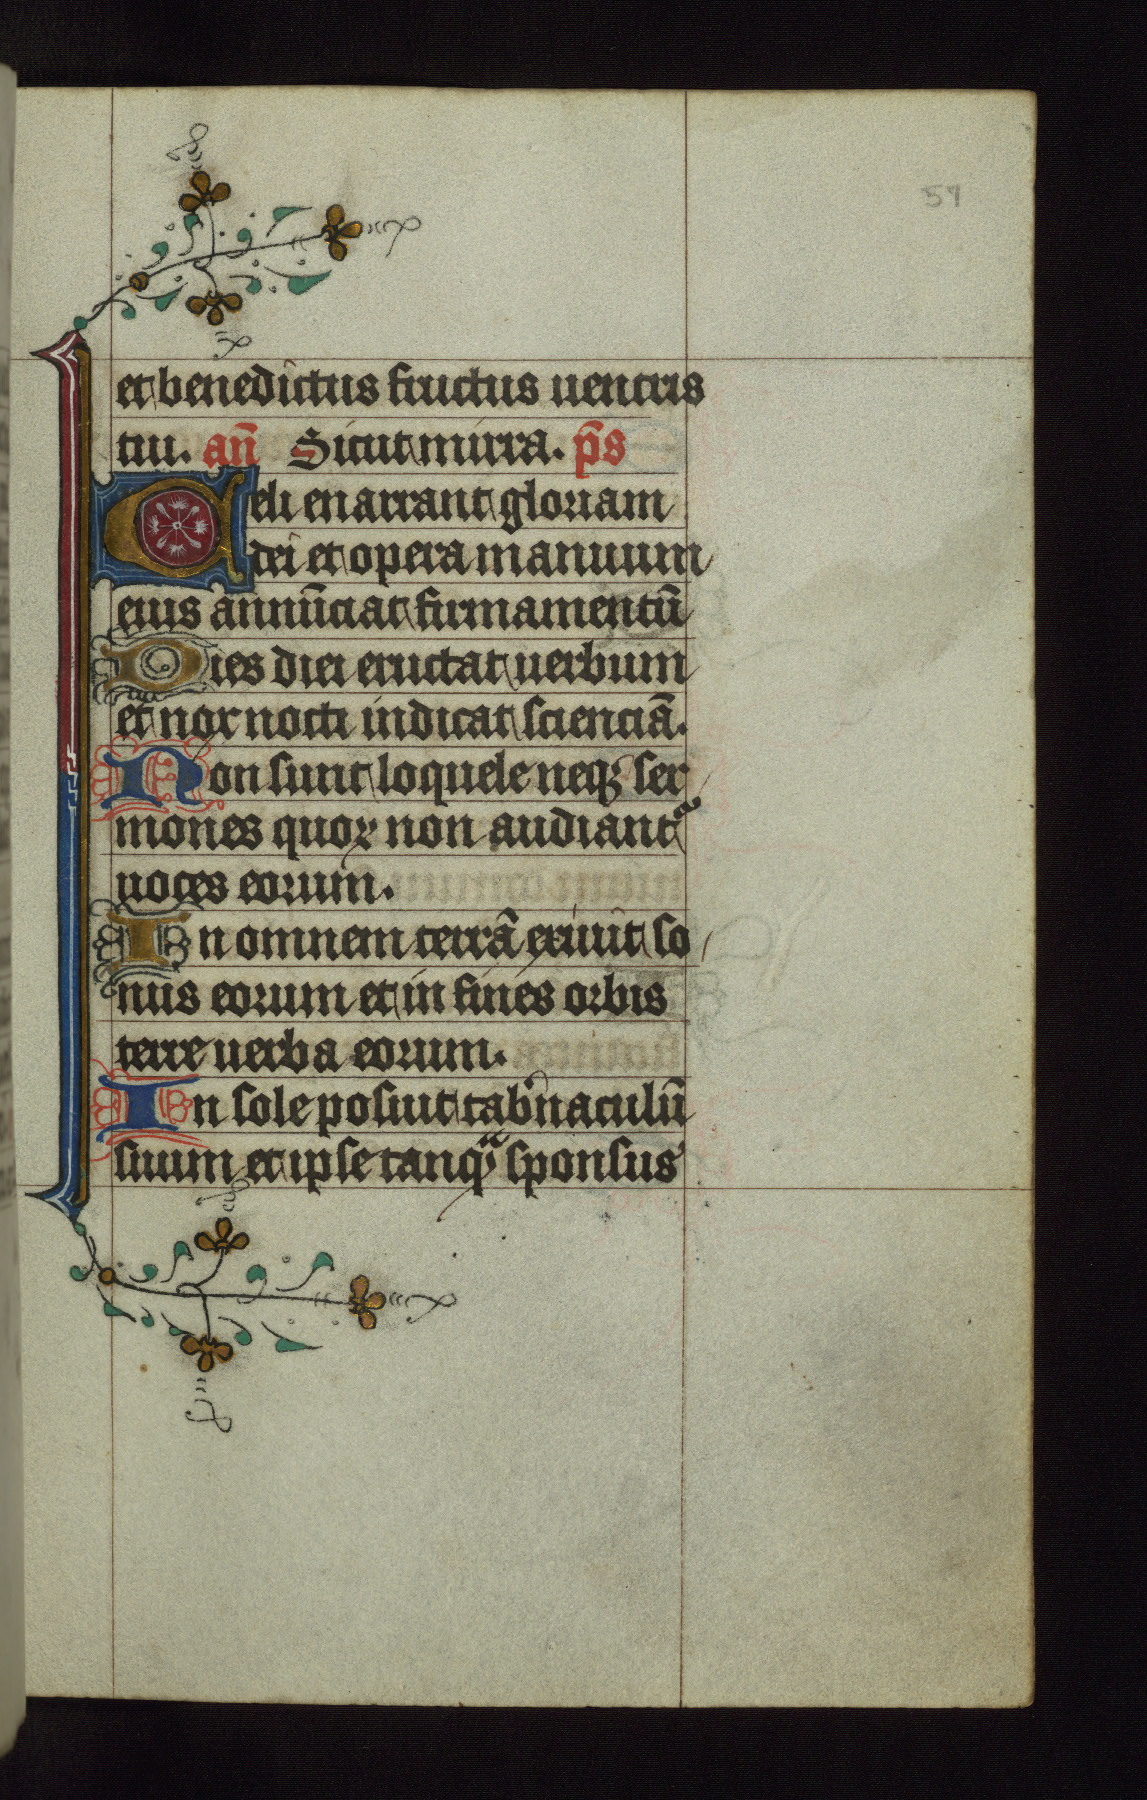 57
et benedictus fructus uentris
tui. an̄ Sicut mirra. p̄s
Celi enarrant gloriam
dei et opera manuum
eius annūciat firmamentū
Dies diei eructat uerbum
et nox nocti indicat scienciā.
Non sunt loquele neqꝫ ser
mones quoꝝ non audiantᷓ
uoces eorum.
In omnem terrā exiuit so
nus eorum et in fines orbis
terre uerba eorum.
In sole posuit tab̾naculū
suum et ipse tanqᷓ sponsus